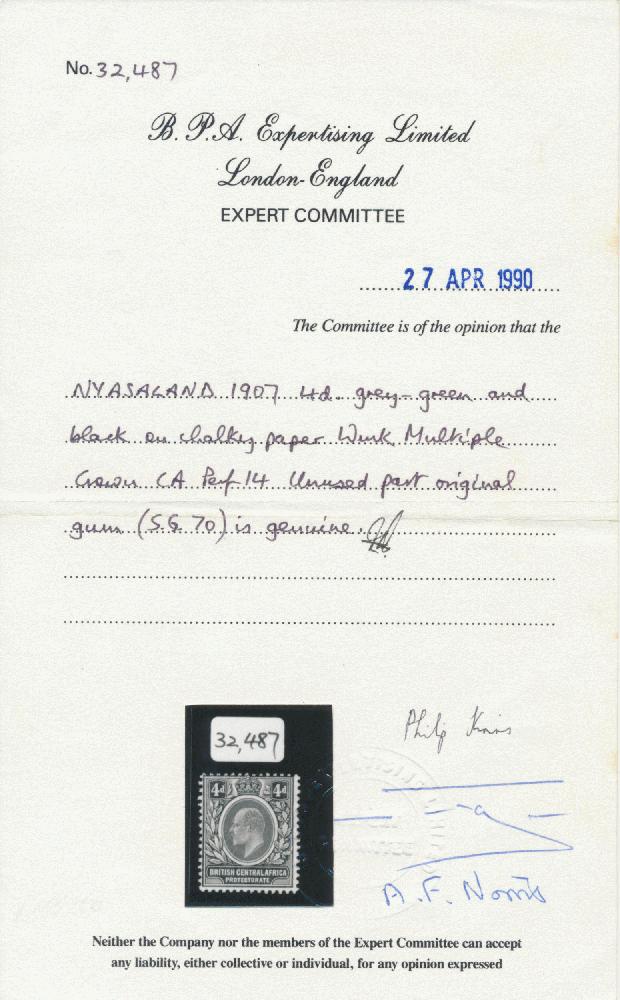 No. 32,487
B. P. A. Expertising Limited
London-England
EXPERT COMMITTEE
27 APR 1990
The Committee is of the opinion that the
NYASALAND 1907 4d. grey-green and
black on chalky paper Wmk Multiple
Crown CA Perf 14 Unused part original
gum (S.G. 70) is genuine.
32,487
4d 4d
BRITISH CENTRAL AFRICA
PROTECTORATE
Philip
A. F. Norris
Neither the Company nor the members of the Expert Committee can accept
any liability, either collective or individual, for any opinion expressed